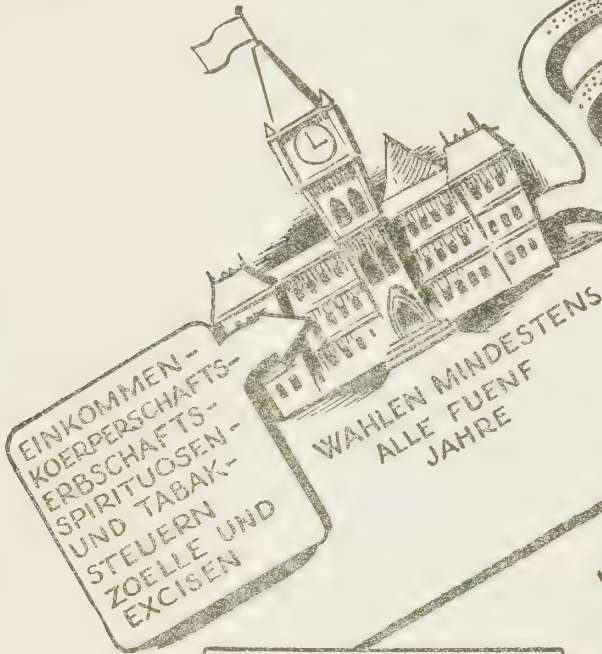 EINKOMMEN-
KOERPERSCHAFTS-
ERBSCHAFTS-
SPIRITUOSEN-
UND TABAK-
STEUERN
ZOELLE UND
EXCISEN
WAHLEN MINDESTENS
ALLE FUENF
JAHRE